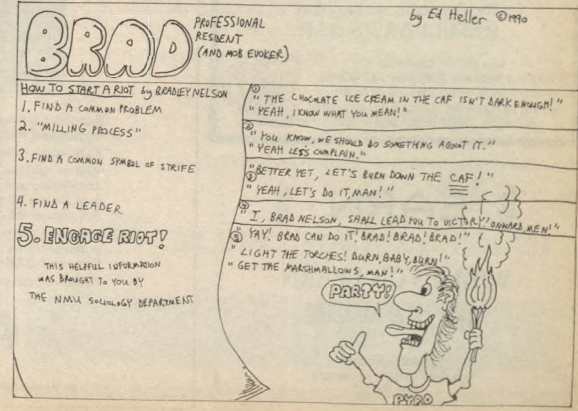 BRAD
PROFESSIONAL
RESIDENT
(AND MOB EVOKER)
by Ed Heller ©1990
HOW TO START A RIOT by BRADLEY NELSON
1. FIND A COMMON PROBLEM
2. "MILLING PROCESS"
3. FIND A COMMON SYMBOL OF STRIFE
4. FIND A LEADER
5. ENGAGE RIOT!
THIS HELPFUL INFORMATION
WAS BROUGHT TO YOU BY
THE NMU SOCIOLOGY DEPARTMENT
1
"THE CHOCOLATE ICE CREAM IN THE CAF ISN'T DARK ENOUGH!"
"YEAH, I KNOW WHAT YOU MEAN!"
2
"YOU KNOW, WE SHOULD DO SOMETHING ABOUT IT."
"YEAH LESS COMPLAIN."
3 "BETTER YET, LET'S BURN DOWN THE CAF!"
"YEAH, LET'S DO IT, MAN!"
4
"I, BRAD NELSON, SHALL LEAD YOU TO VICTORY! ONWARD, MEN!"
5 "YAY! BRAD CAN DO IT! BRAD! BRAD! BRAD!"
LIGHT THE TORCHES! BURN, BABY, BURN!"
"GET THE MARSHMALLOWS, MAN!"
PARTY!
PYRO